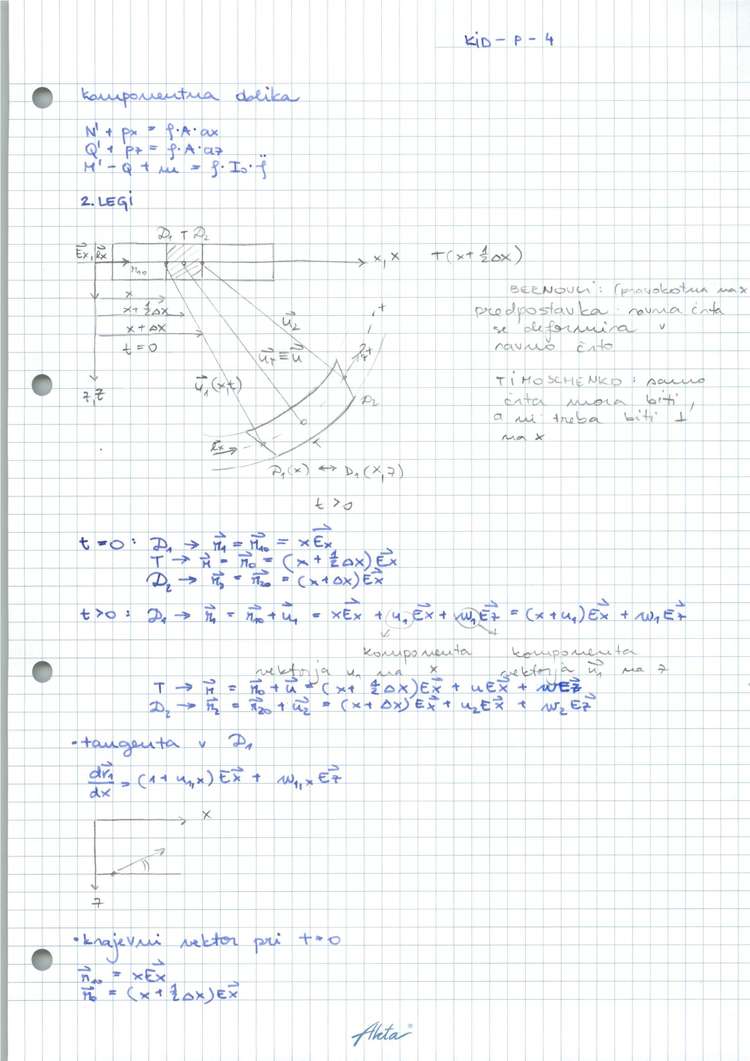 KID - P - 4
komponentna oblika
N' + px = ρ·A·ax
Q' + pz = ρ·A·az
M' - Q + m = ρ·I₀·φ̈
2. LEGI
D₁ T D₂
E⃗x, e⃗x
r⃗₁₀
x, X
T(x + ½Δx)
x
x + ½Δx
x + Δx
t = 0
z, Z
u⃗₂
u⃗T ≡ u⃗
u⃗₁(x,t)
D₂
e⃗x
D₁(x) ↔ D₁(X,Z)
t > 0
BERNOULI: (pravokotna na x
predpostavka: ravna črta
se deformira v
ravno črto
TIMOSCHENKO: samo
črta mora biti,
a ni treba biti ⊥
na x
t = 0: D₁ → r⃗₁ = r⃗₁₀ = xE⃗x
T → r⃗ = r⃗₀ = (x + ½Δx)E⃗x
D₂ → r⃗₂ = r⃗₂₀ = (x + Δx)E⃗x
t > 0: D₁ → r⃗₁ = r⃗₁₀ + u⃗₁ = xE⃗x + u₁E⃗x + w₁E⃗z = (x + u₁)E⃗x + w₁E⃗z
komponenta komponenta
vektorja u₁ na x vektorja u⃗₁ na z
T → r⃗ = r⃗₀ + u⃗ = (x + ½Δx)E⃗x + uE⃗x + wE⃗z
D₂ → r⃗₂ = r⃗₂₀ + u⃗₂ = (x + Δx)E⃗x + u₂E⃗x + w₂E⃗z
• tangenta v D₁
dr⃗₁/dx = (1 + u₁,x)E⃗x + w₁,x E⃗z
x
z
• krajevni vektor pri t = 0
r⃗₁₀ = xE⃗x
r⃗₀ = (x + ½Δx)E⃗x
Akta